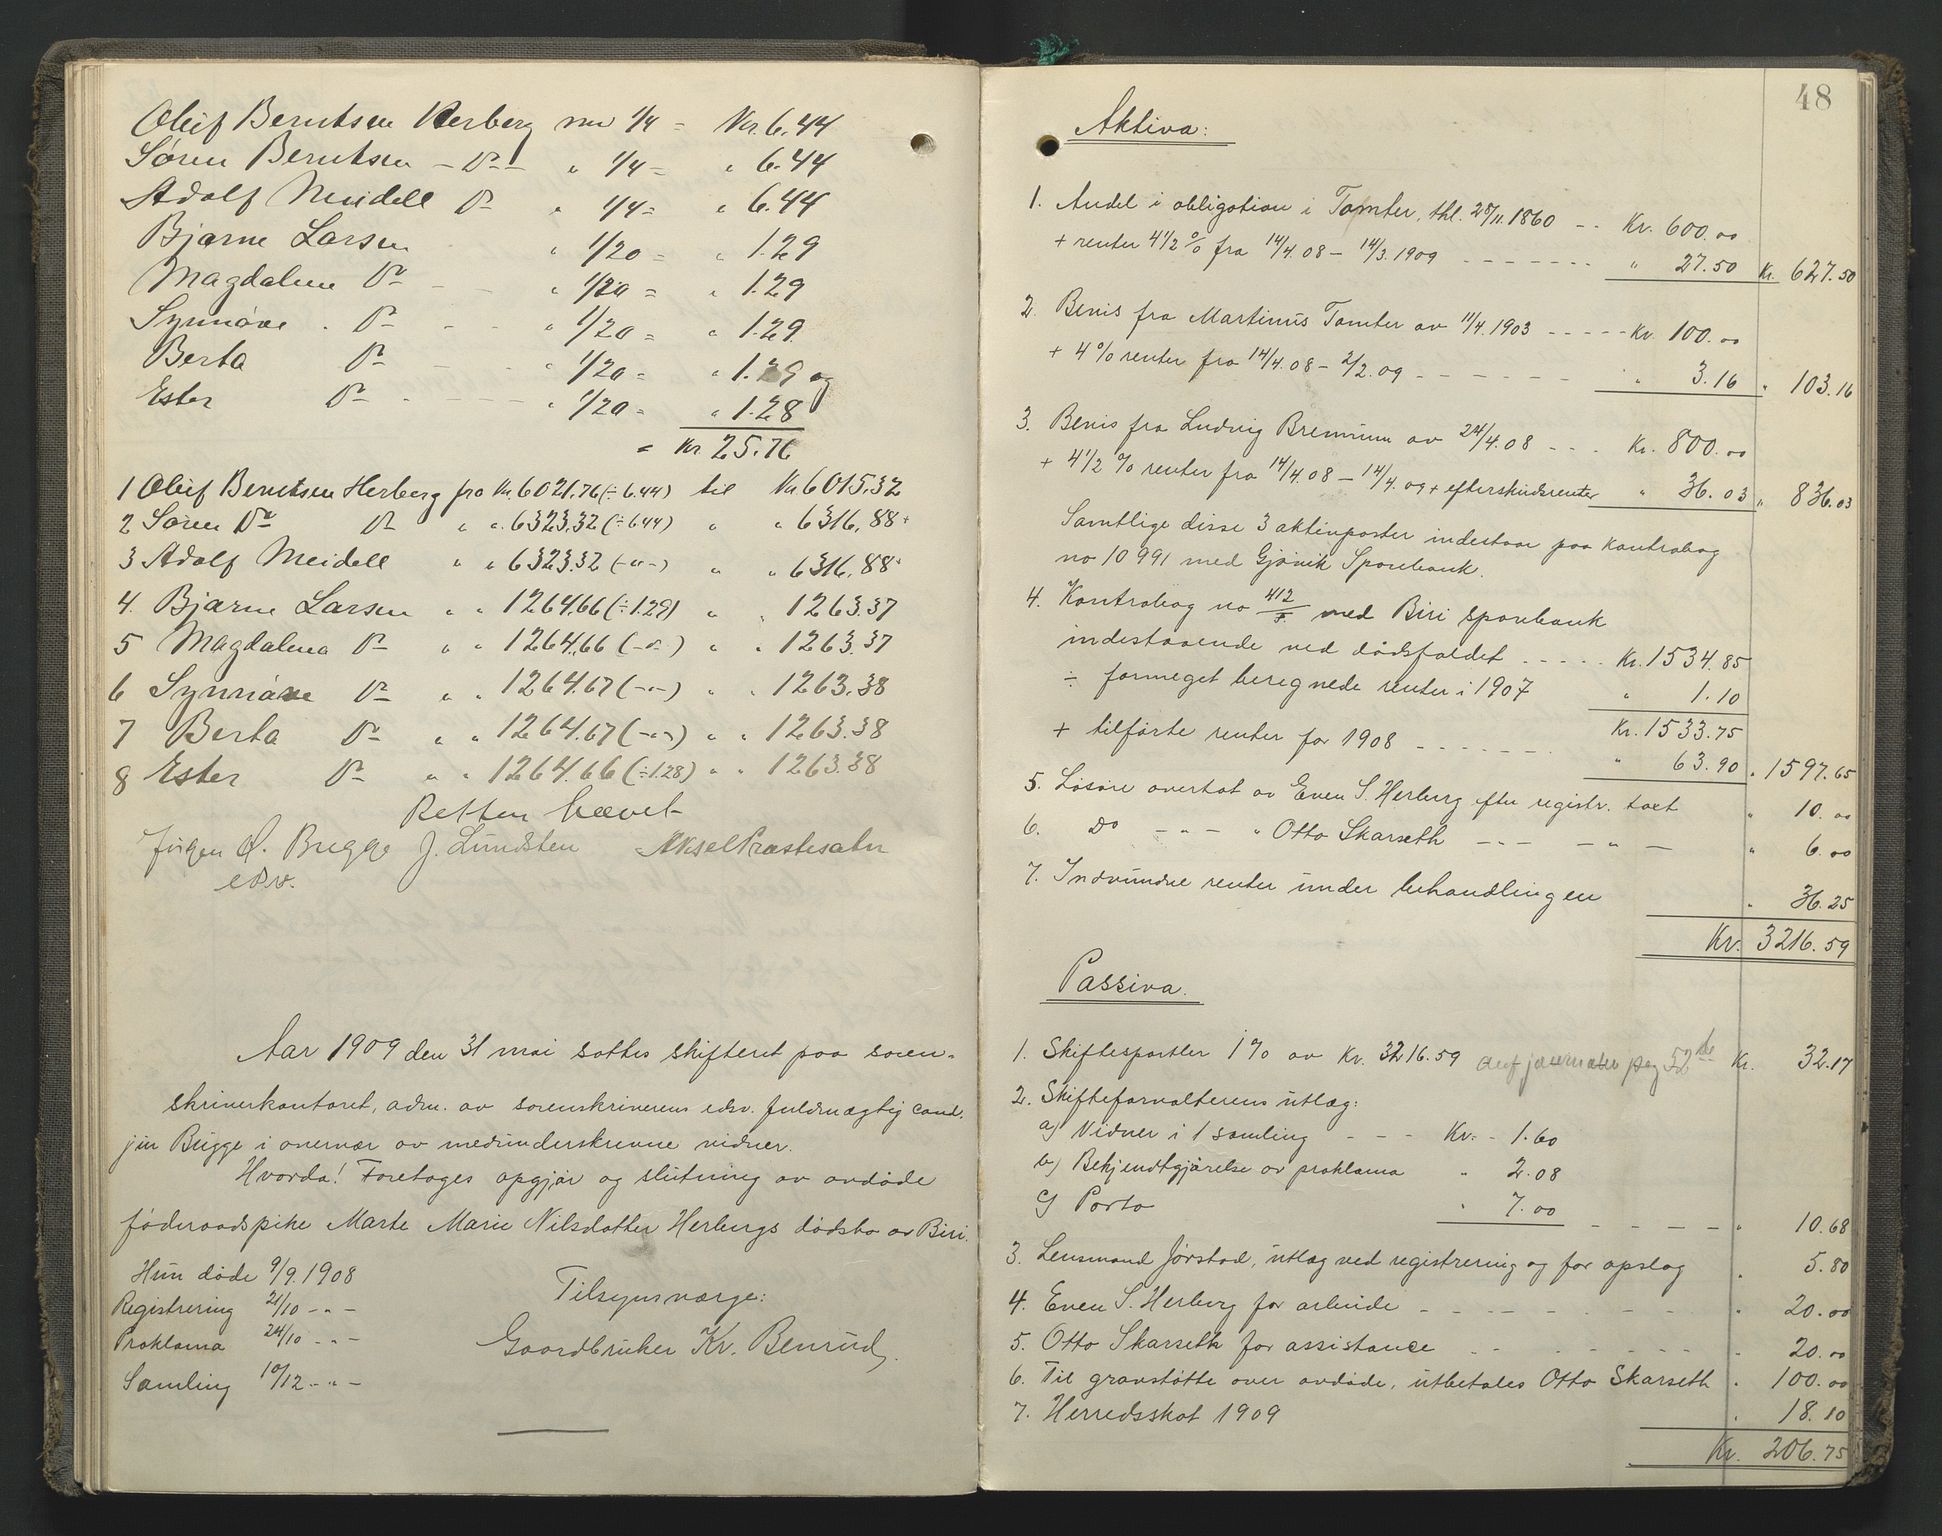 Oluf Berntsen Herberg med 1/4 = Kr. 6.44
Søren Berntsen - Do - " 1/4 = " 6.44
Adolf Meidell Do " 1/4 = " 6.44
Bjarne Larsen " 1/20 = " 1.29
Magdalena Do - - " 1/20 = " 1.29
Synnøve . Do - - " 1/20 = " 1.29
Berta Do - - " 1/20 = " 1.29 og
Ester Do - - - " 1/20 = " 1.28
= Kr 25.76
1 Oluf Berntsen Herberg fra Kr 6021.76 (÷ 6.44) til Kr 6015.32
2 Søren Do Do " " 6323.32 (÷ 6.44) " " 6316.88
3 Adolf Meidell " " 6323.32 (-"-) " " 6316.88
4. Bjarne Larsen " " 1264.66 (÷ 1.29) " " 1263.37
5 Magdalena Do " " 1264.66 (-"-) " " 1263.37
6 Synnøve Do " " 1264.67 (-"-) " " 1263.38
7 Berta Do " " 1264.67 (-"-) " " 1263.38
8 Ester Do " " 1264.66 (÷ 1.28) " " 1263.38
Retten hævet
Jørgen Q. Brugge J. Lundsten Aksel Præstesater
edsv.
Aar 1909 den 31 mai sattes skifteret paa soren-
skriverkontoret, adm. av sorenskriverens edsv. fuldmægtig cand.
jur Brügge i overvær av medunderskrevne vidner.
Hvorda! Foretoges opgjør og slutning av avdøde
føderaadspike Marte Marie Nilsdatter Herbergs dødsbo av Biri.
Hun døde 9/9. 1908
Registrering 21/10 - " -
Proklama 24/10 - " -
Samling 10/12 - " -
Tilsynsværge:
Gaardbruker Kr. Benrud.
48
Aktiva:
1. Andel i obligation i Tomter, thl. 28/11. 1860 - - Kr. 600.00
+ renter 4 1/2 % fra 14/4.08 - 14/3. 1909 - - - - " 27.50 Kr. 627.50
2. Bevis fra Martinus Tomter av 11/4. 1903 - - - - Kr. 100.00
+ 4 % renter fra 14/4.08 - 2/2.09 - - - - " 3.16 " 103.16
3. Bevis fra Ludvig Bremnum av 24/4.08 - - - Kr. 800.00
+ 4 1/2 % renter fra 14/4.08 - 14/4.09 + efterskudsrenter " 36.03 " 836.03
Samtlige disse 3 aktivposter indestaar paa kontrabog
no 10991 med Gjøvik Sparebank.
4. Kontrabog no 412/F med Biri sparebank
indestaaende ved dødsfaldet - - - - Kr. 1534.85
÷ formeget beregnede renter i 1907 " 1.10
Kr. 1533.75
+ tilførte renter for 1908 - - - - " 63.90 " 1597.65
5. Løsøre overtat av Even S. Herberg efter registr. taxt " 10.00
6. Do - " - " Otto Skarseth - - - - " - " 6.00
7. Indvundne renter under behandlingen " 36.25
Kr. 3216.59
Passiva.
1. Skiftesportler 1 % av Kr. 3216.59 Kr. 32.17
2. Skifteforvalterens utlæg:
a) Vidner i 1 samling - - - Kr. - 1.60
b) Bekjendtgjørelse av proklama " 2.08
c) Porto " 7.00 - - - - - " 10.68
3. Lensmand Jørstad, utlæg ved registrering og for opslag " 5.80
4. Even S. Herberg for arbeide - - - - - - " 20.00
5. Otto Skarseth for assistance - - - - - - " 20.00
6. Til gravstøtte over avdøde, utbetales Otto Skarseth " 100.00
7. Herredsskat 1909 " 18.10
Kr. 206.75